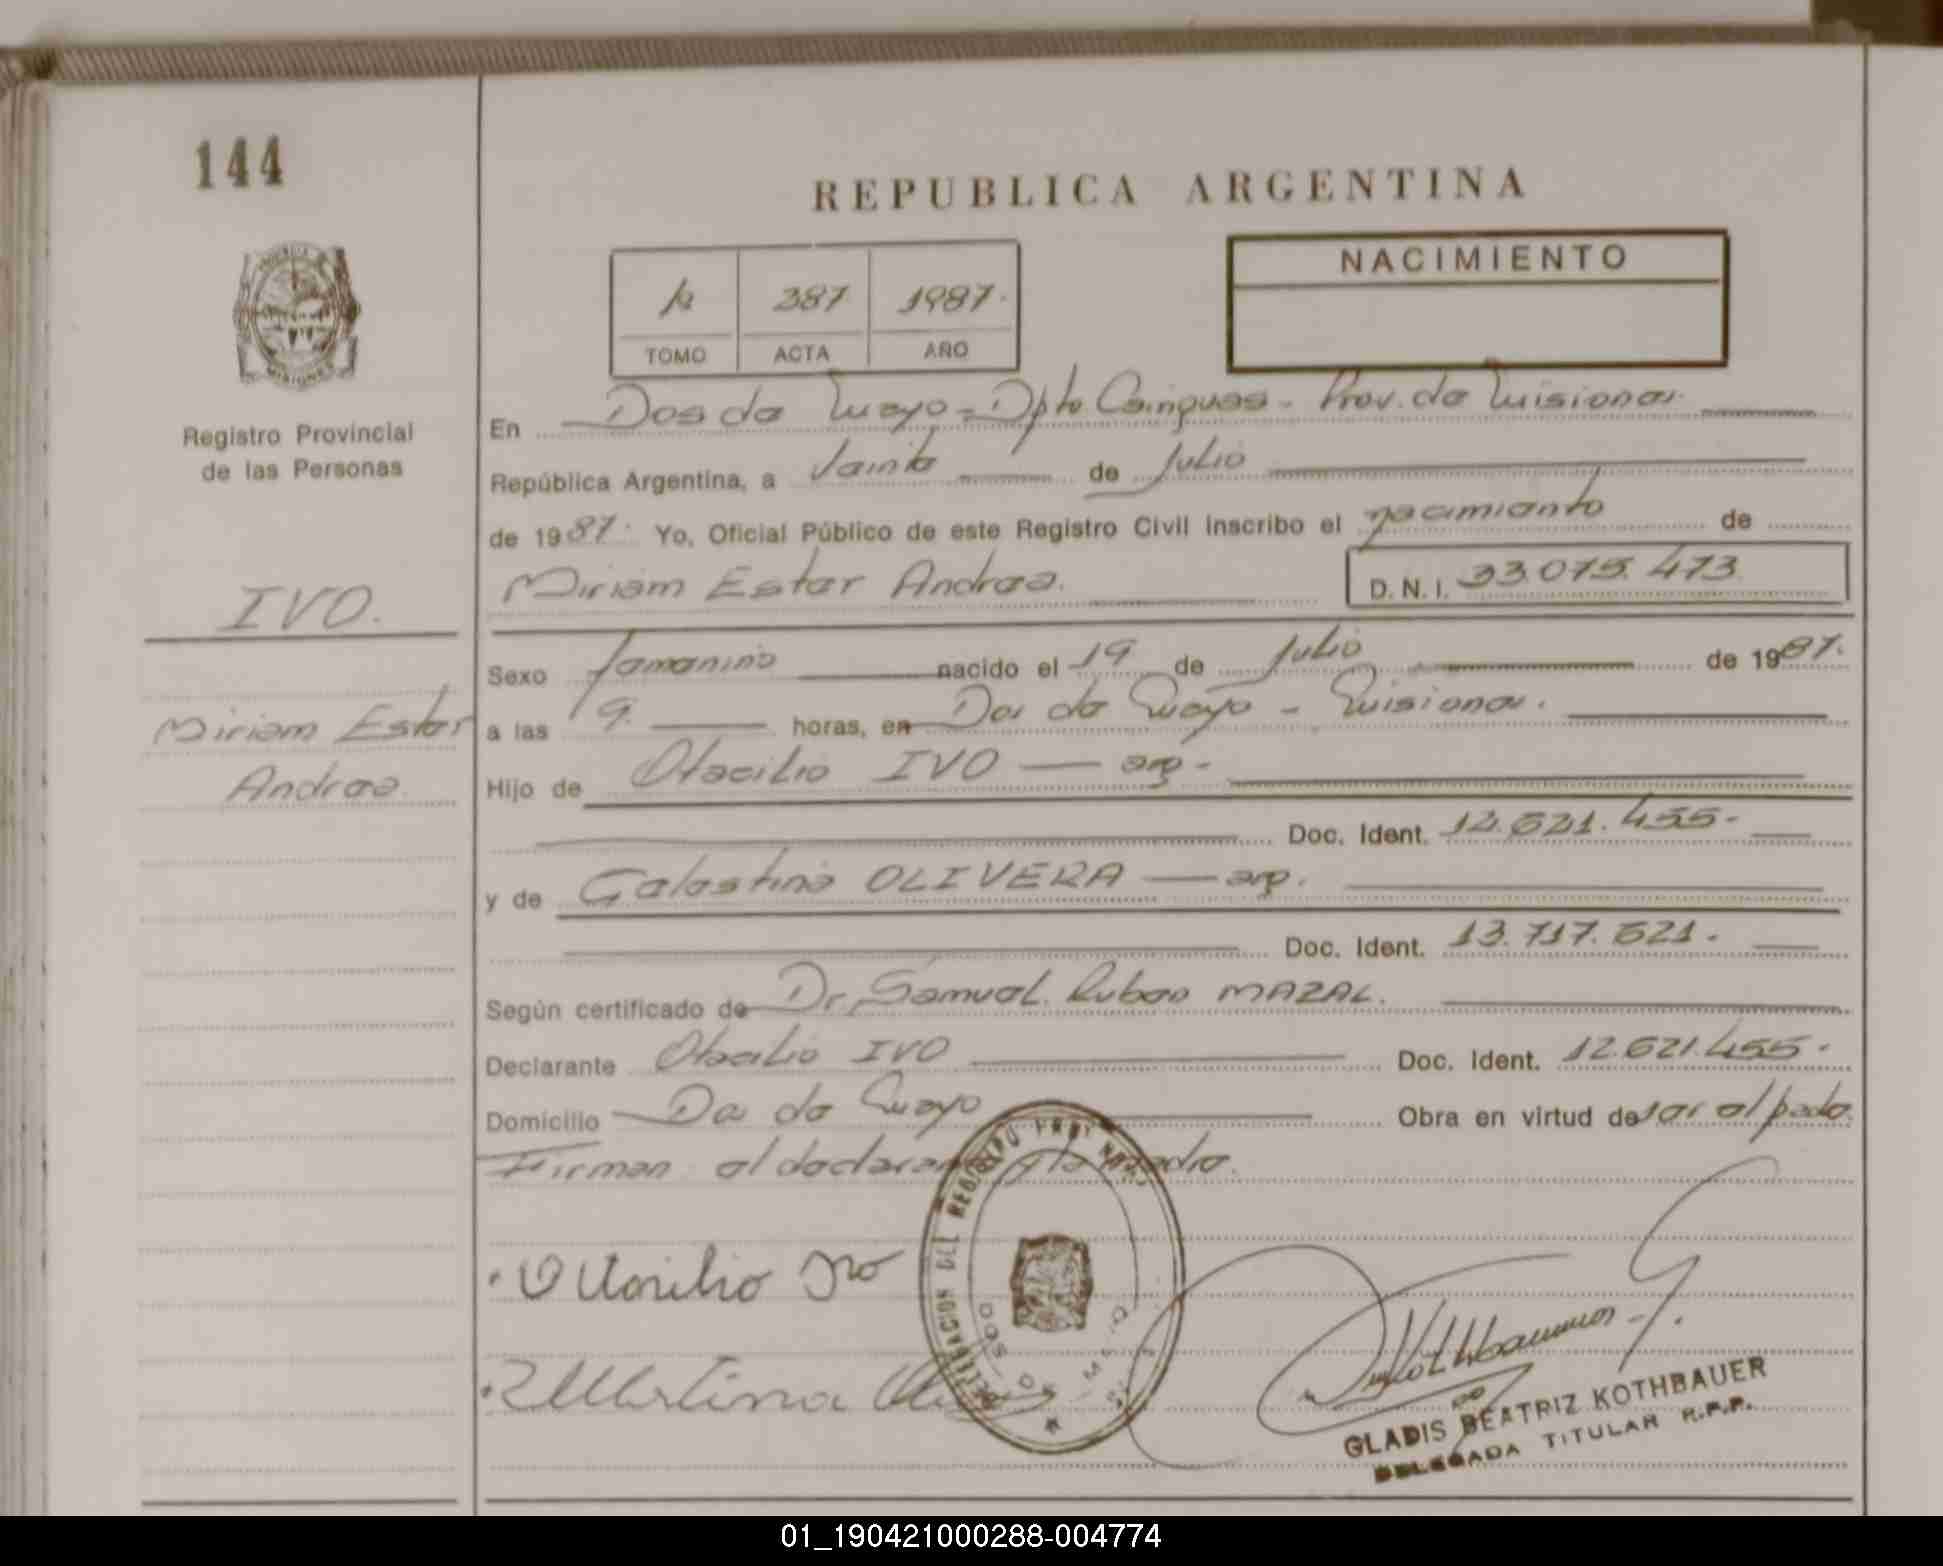 144
REPUBLICA ARGENTINA
387 1987.
TOMO ACTA AÑO
NACIMIENTO
Registro Provincial
de las Personas
En Dos de Mayo - Dpto Cainguas - Prov. de Misiones.
República Argentina, a Veinte de Julio
de 1987. Yo, Oficial Público de este Registro Civil inscribo el nacimiento de
Miriam Ester Andrea. D. N. I. 33.075.473
IVO.
Miriam Ester
Andrea.
Sexo femenino nacido el 19 de Julio de 1987.
a las 9 horas, en Dos de Mayo - Misiones.
Hijo de Otacilio IVO arg.
Doc. Ident. 12.621.455.
y de Celestina OLIVERA arg.
Doc. Ident. 13.717.621.
Según certificado de Dr. Samuel Ruben MAZAL.
Declarante Otacilio IVO Doc. Ident. 12.621.455.
Domicilio Dos de Mayo Obra en virtud de ser el padre.
Firman el declarante y la madre.
Ivo
DELEGACION DEL REGISTRO
DOS DE MAYO
GLADIS BEATRIZ KOTHBAUER
DELEGADA TITULAR R.P.P.
01_190421000288-004774